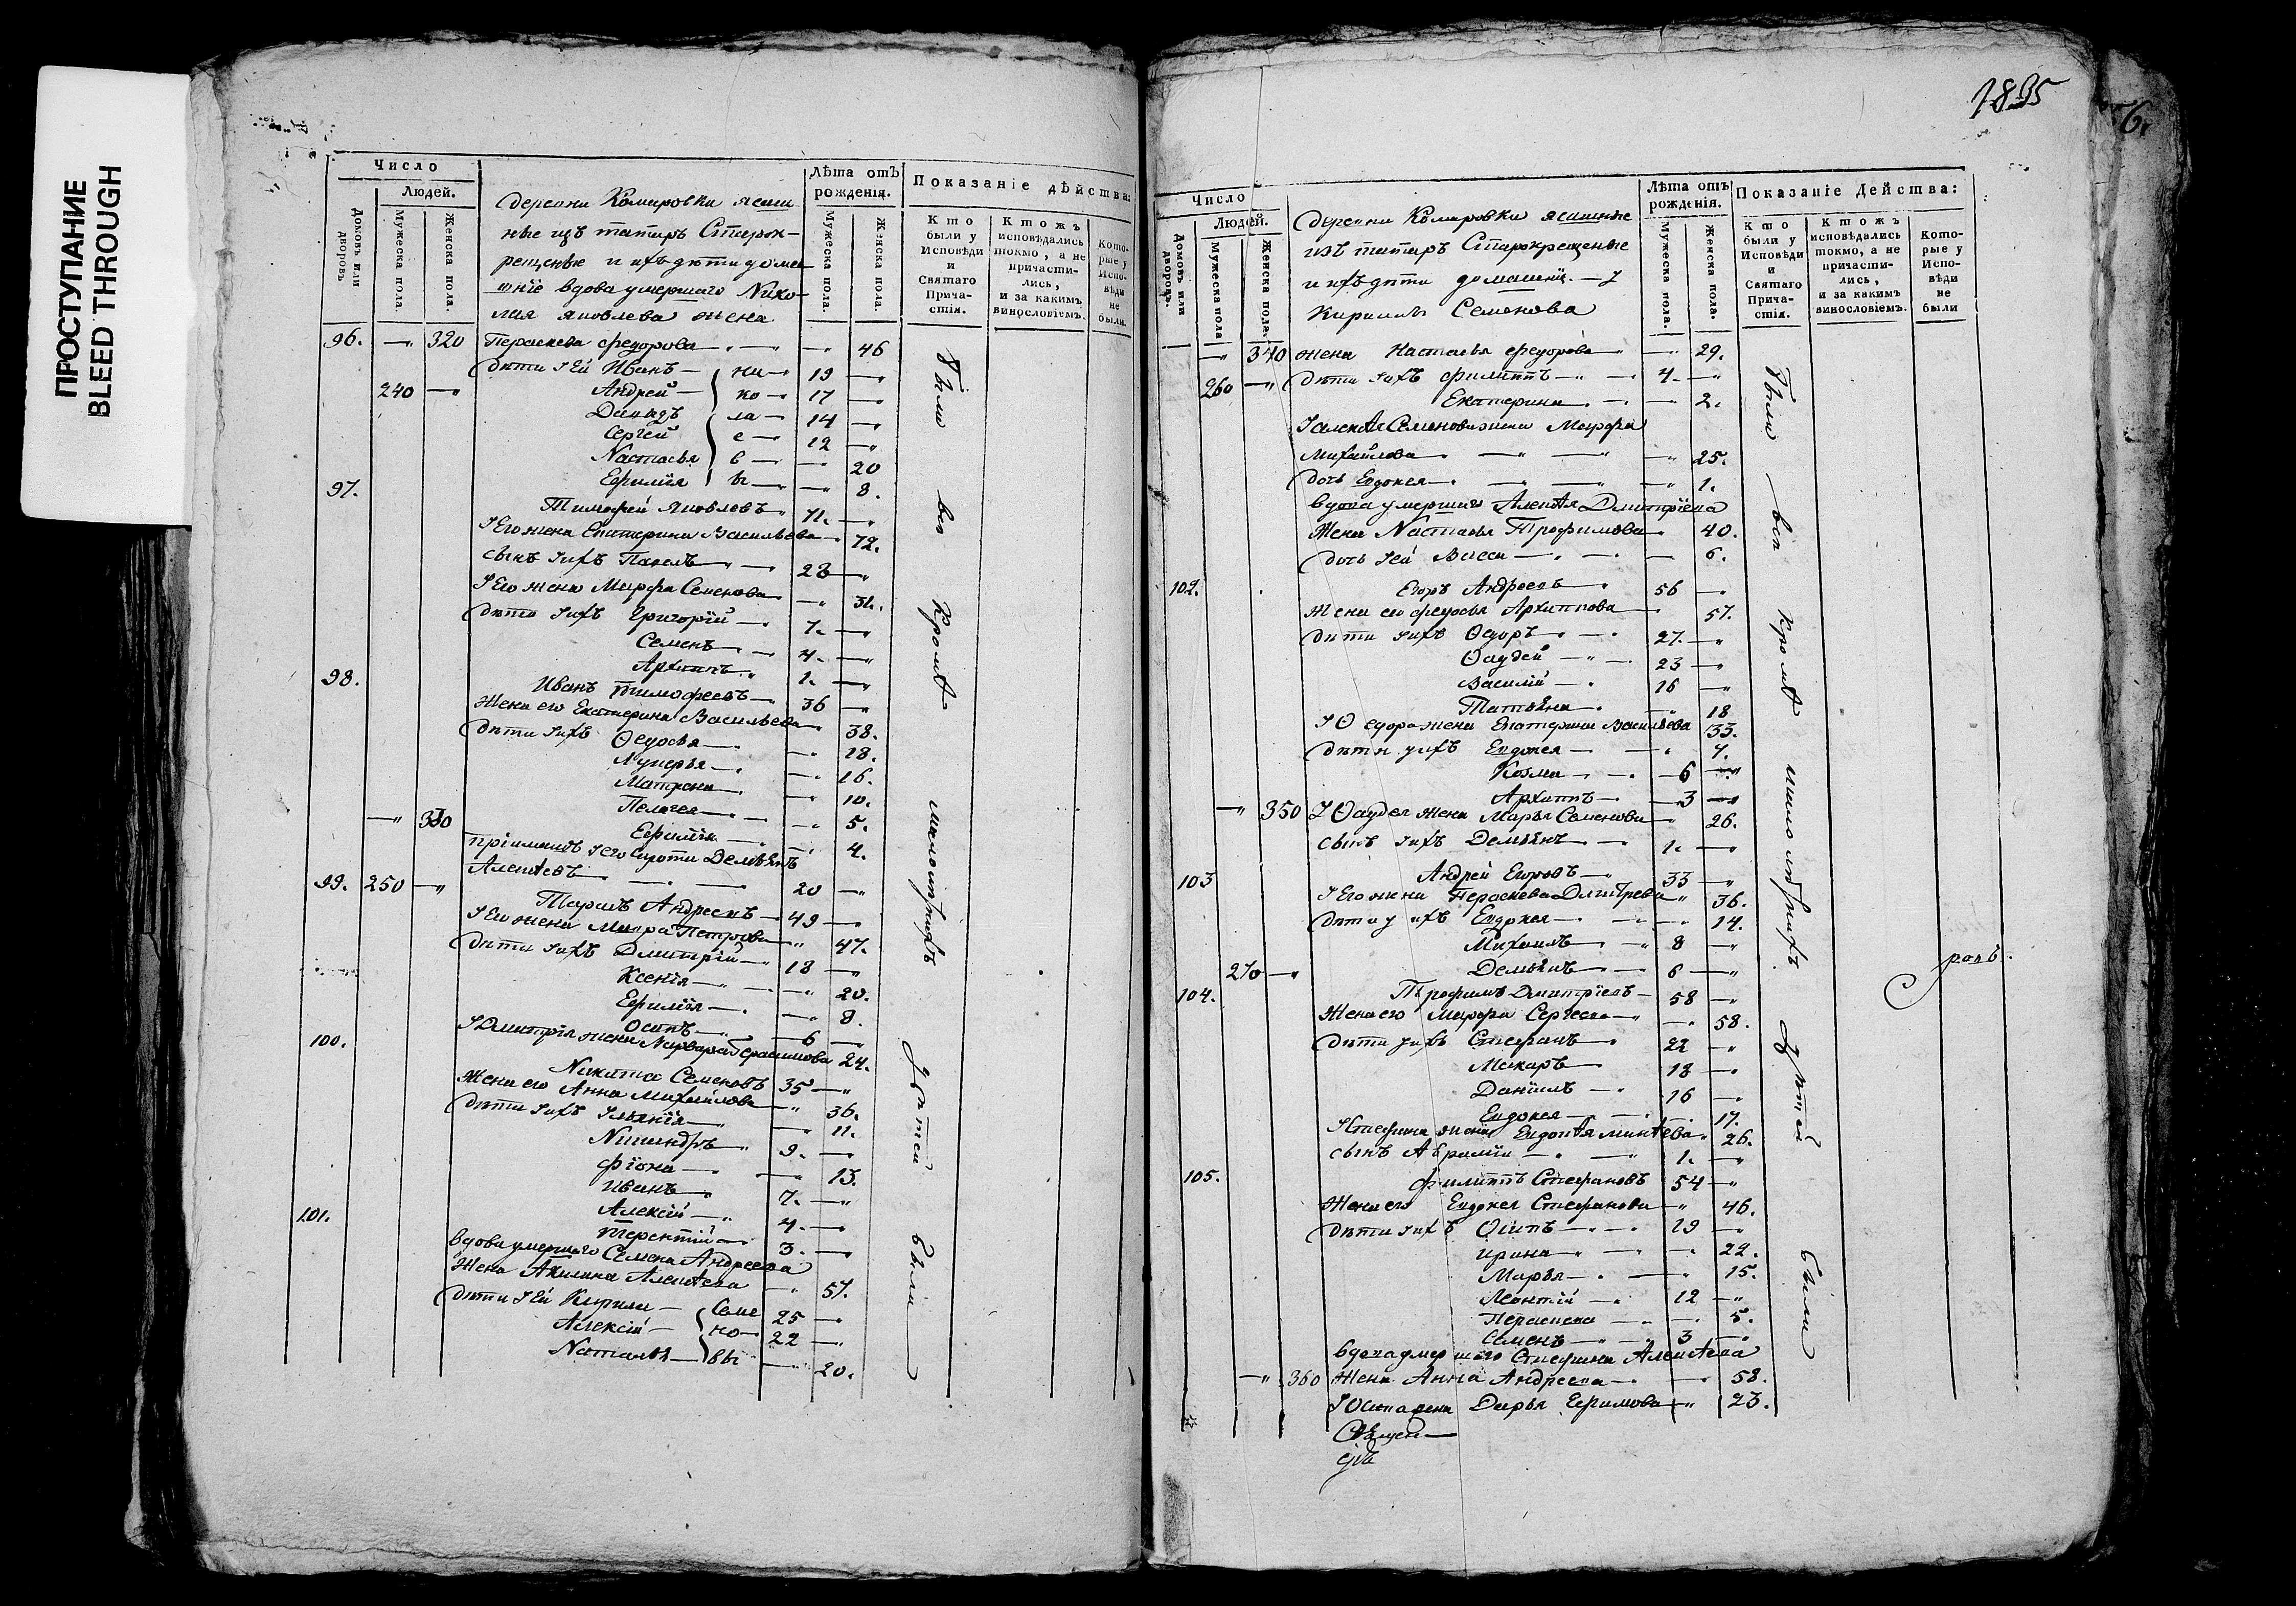 ПРОСТУПАНИЕ
BLEED THROUGH
Число
Людей.
Домовъ или дворовъ.
Мужеска пола.
Женска пола.
Деревни Комировки ясаш
ные изъ татаръ Старок-
рещеные и ихъ дѣти дома
шніе вдова умершаго Нико-
лая Яковлева жена
Лѣта отъ рожденія.
Мужеска пола.
Женска пола.
Показаніе дѣйства:
Кто были у Исповѣди и Святаго Прича-стія.
Ктожъ исповѣдались токмо, а не причасти-лись, и за какимъ винословіемъ.
Кото-рые у Испо-вѣди не были.
96. — 320 Параскева Федорова — 46
Дѣти у ей Иванъ — ни — 19 —
240 — Андрей — ко — 17 —
Давидъ ла — 14 —
Сергей е — 12 —
Настасья в — — 20
Ефимія ы — — 8.
97. Тимофей Яковлевъ — 71. —
У Его жена Екатерина Васильева — 72.
Сынъ у ихъ Павелъ — 28 —
У Его жена Марфа Семенова — 31.
Дѣти у ихъ Григорій — 7. —
Семенъ — 4. —
Архиппъ — 1. —
98. Иванъ Тимофеевъ — 36 —
Жена его Екатерина Васильева — 38.
Дѣти у ихъ Федосья — — 18.
Лукерья — — 16.
Матрена — 10.
Пелагея — — 5.
— 330 Ефимія — 4.
пріимышъ у его сирота Демьянъ
Алексѣевъ — — — 20 —
99. 250 — Тарасъ Андреевъ — 49 —
У Его жена Мавра Петрова — 47.
Дѣти у ихъ Дмитрій — 18 —
Ксенія — — 20.
Ефимія — — 8.
Осипъ — 6 —
У Дмитрія жена Варвара Герасимова 24.
100. Никита Семеновъ 35 —
Жена его Анна Михайлова — 36.
Дѣти у ихъ Ульянія — — 11.
Никандръ 9. —
Фіона — — 13.
Иванъ — 7. —
Алексій — 4. —
Терентій — 3. —
101. вдова умершаго Семена Андреева
Жена Акилина Алексѣева — 57.
Дѣти у ей Кирила — Семе 25 —
Алексій — но — 22 —
Наталья — вы — 20.
Были всѣ кромѣ малолѣтнихъ дѣтей были
1835
56.
Число
Людей.
Домовъ или дворовъ.
Мужеска пола
Женска пола.
Деревни Комировки ясашные
изъ татаръ Старокрещеные
и ихъ дѣти домашніе. — У
Кирилы Семенова
Лѣта отъ рожденія.
Мужеска пола.
Женска пола.
Показаніе Действа:
Кто были у Исповѣди и Святаго Прича-стія.
Ктожъ исповѣдались токмо, а не причасти-лись, и за какимъ винословіемъ.
Кото-рые у Испо-вѣди не были
— 340 жена Настасья Федорова — 29.
260 — Дѣти у ихъ Филиппъ — 4. —
Екатерина — — 2.
У Алексѣя Семенова жена Марфа
Михайлова — — — 25.
Дочь Евдокея — — — 1.
вдова умершаго Алексѣя Дмитріева
Жена Настасья Трофимова 40.
Дочь у ей Васса — — 6.
102. Егоръ Андреевъ 56 —
Жена его Федосья Архиппова 57.
Дѣти у ихъ Федоръ — 27. —
Фадей — 23 —
Василій — 16 —
Татьяна — 18
У Федора жена Екатерина Васильева 33.
Дѣти у ихъ Евдокея — — 7.
Козма — — 6 —
Архиппъ — — 3 —
— 350 У Фадея жена Марья Семенова 26.
сынъ у ихъ Демьянъ — 1. —
103 Андрей Егоровъ — 33 —
У Его жена Параскева Дмитрева 36.
Дѣти у ихъ Евдокея — — 14.
Михаилъ — 8 —
270 — Демьянъ — 6 —
104. Трофимъ Дмитріевъ — 58 —
Жена его Марфа Сергеева — 58.
Дѣти у ихъ Стефанъ 22 —
Макаръ 18 —
Даніилъ — 16 —
Евдокея — — 17.
У Стефана жена Евдокѣя 26.
сынъ Аврамій — 1. —
105. Филиппъ Стефановъ 54 —
Жена его Евдокея Стефанова — 46.
Дѣти у ихъ Осипъ — 19 —
Ирина — — 22.
Марья — — 15.
Леонтій — 12 —
Параскева — — 5.
Семенъ — 3 —
вдова умершаго Стефана Алексѣева
— 360 Жена Анна Андреева — 58.
У Осипа жена Дарья Ефимова — 23.
Были всѣ кромѣ малолѣтнихъ дѣтей были